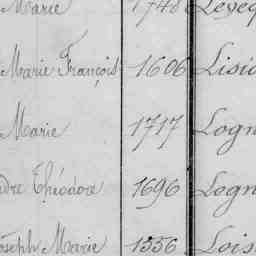 Marie 1748 Leveq
Marie François 1606 Lisi
Marie 1717 Logn
dre Théodore 1696 Logn
Joseph Marie 1556 Lois